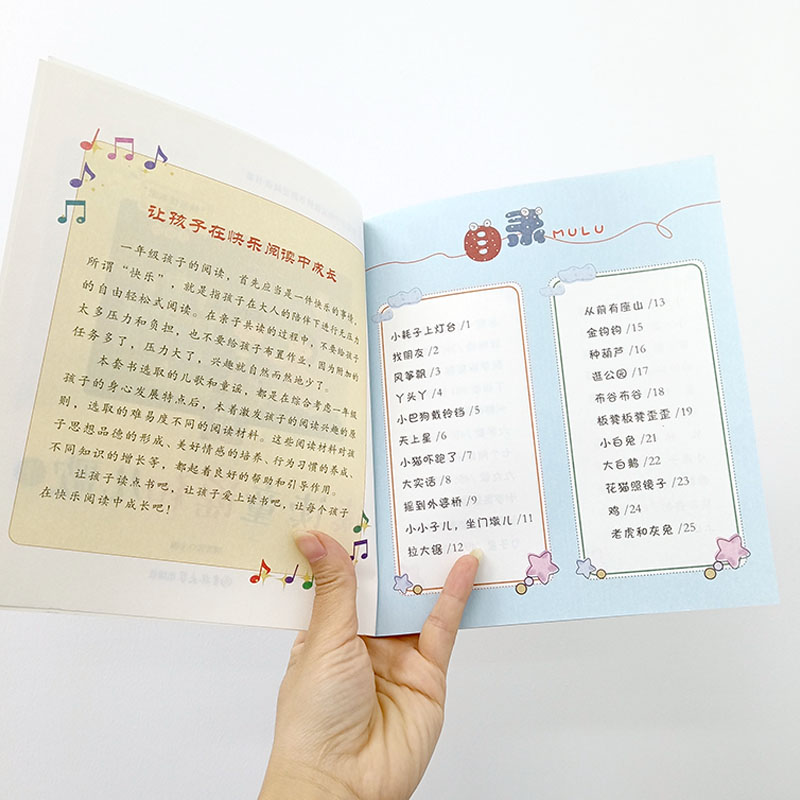 让孩子在快乐阅读中成长
一年级孩子的阅读，首先应当是一件快乐的事情，
所谓“快乐”，就是指孩子在大人的陪伴下进行无压力
的自由轻松式阅读。在亲子共读的过程中，不要给孩子
太多压力和负担，也不要给孩子布置作业，因为附加的
任务多了，压力大了，兴趣就自然而然地少了。
本套书选取的儿歌和童谣，都是在综合考虑一年级
孩子的身心发展特点后，本着激发孩子的阅读兴趣的原
则，选取的难易度不同的阅读材料。这些阅读材料对孩
子思想品德的形成、美好情感的培养、行为习惯的养成、
不同知识的增长等，都起着良好的帮助和引导作用。
让孩子读点书吧，让孩子爱上读书吧，让每个孩子
在快乐阅读中成长吧！
目录 MULU
小耗子上灯台 /1
找朋友 /2
风筝飘 /3
丫头丫 /4
小巴狗戴铃铛 /5
天上星 /6
小猫吓跑了 /7
大实话 /8
摇到外婆桥 /9
小小子儿，坐门墩儿 /11
拉大锯 /12
从前有座山 /13
金钩钩 /15
种葫芦 /16
逛公园 /17
布谷布谷 /18
板凳板凳歪歪 /19
小白兔 /21
大白鹅 /22
花猫照镜子 /23
鸡 /24
老虎和灰兔 /25